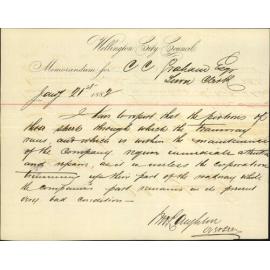 Wellington City Council
Memorandum for C C Graham Esqr
Town Clerk
Jany 21st 1882
I have to report that the portions of
those streets through which the tramway
runs and which is within the maintenance
of the Company require immediate attention
and repairs, as it is useless the corporation
up their part of the roadway while
the companies part remains in its present
very bad condition —